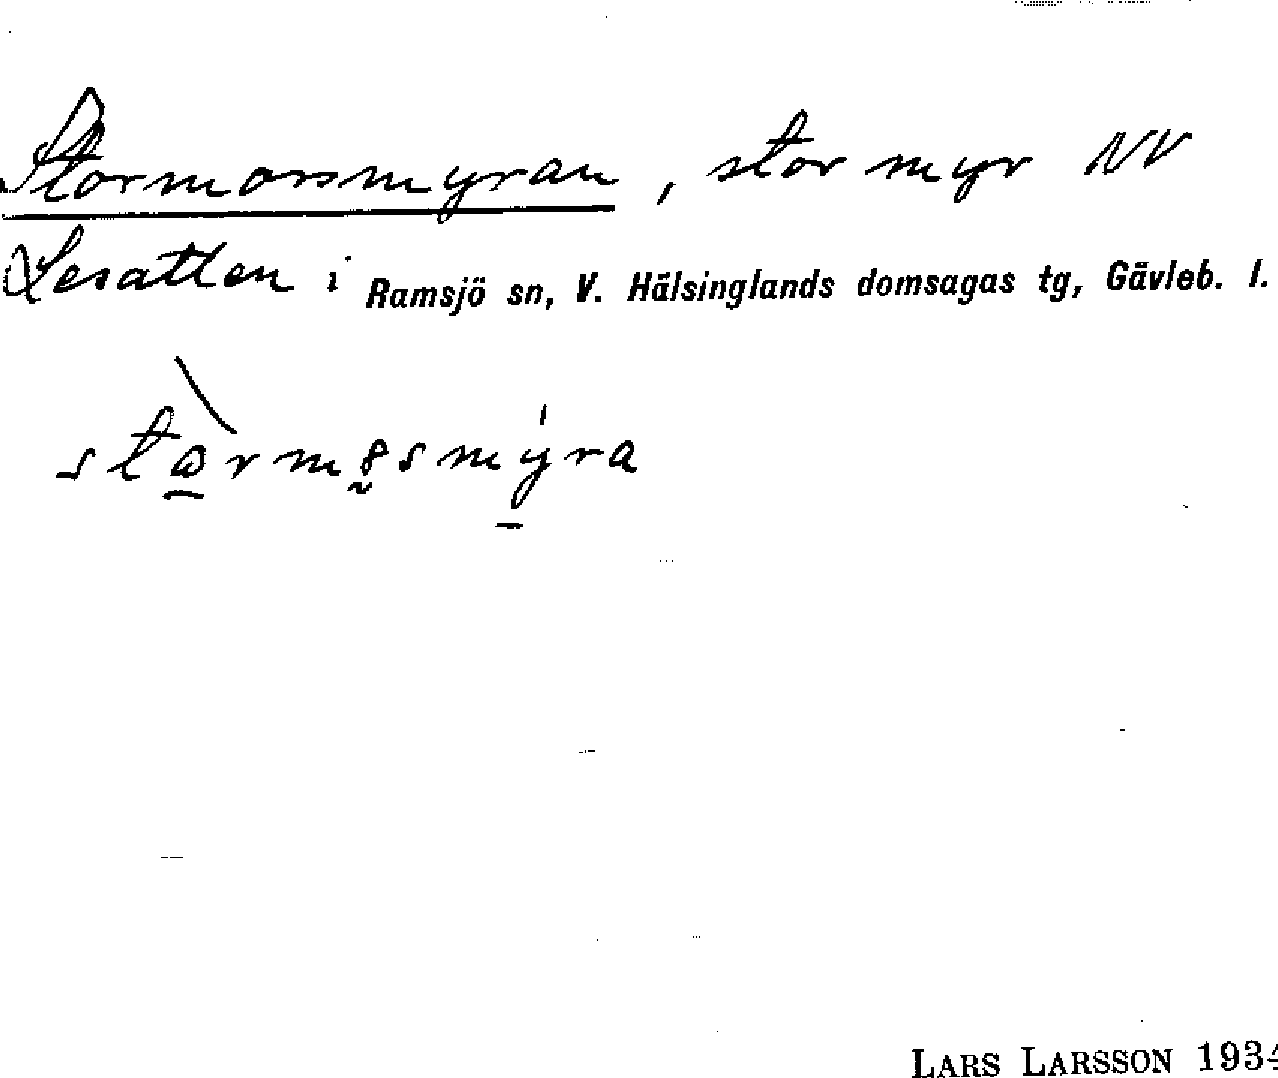 Stormorsmyran, stor myr NV
Lesatten i Ramsjö sn, V. Hälsinglands domsagas tg, Gävleb. l.
LARS LARSSON 1934